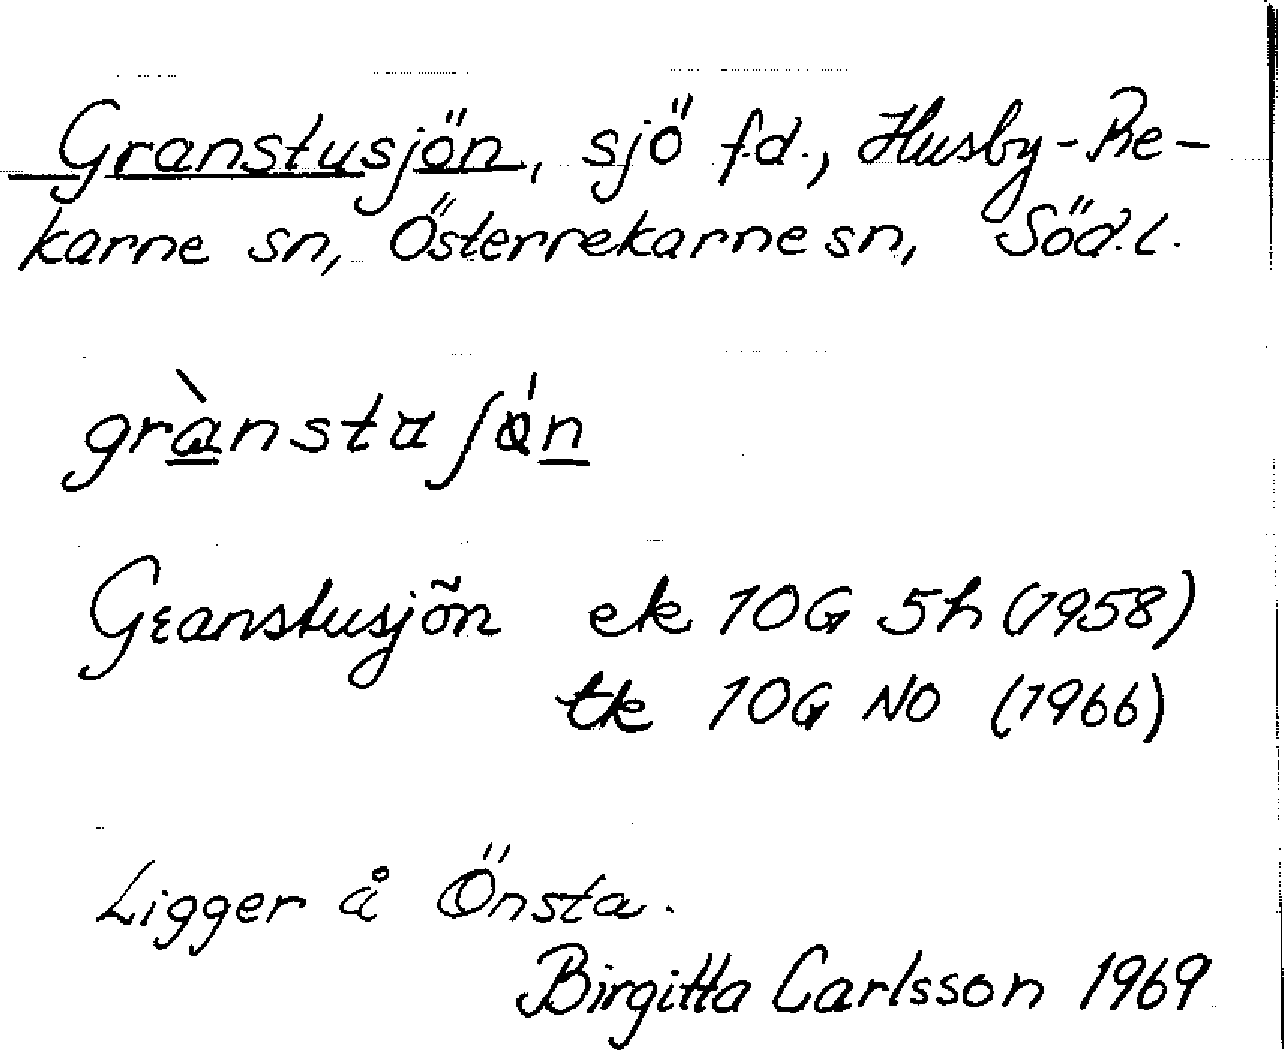 Granstusjön, sjö f.d., Husby-Re-
karne sn, Österrekarne sn, Söd. l.
grànsta ʃɵ́n
Granstusjön ek 10G 5h (1958)
tk 10G NO (1966)
Ligger å Önsta.
Birgitta Carlsson 1969